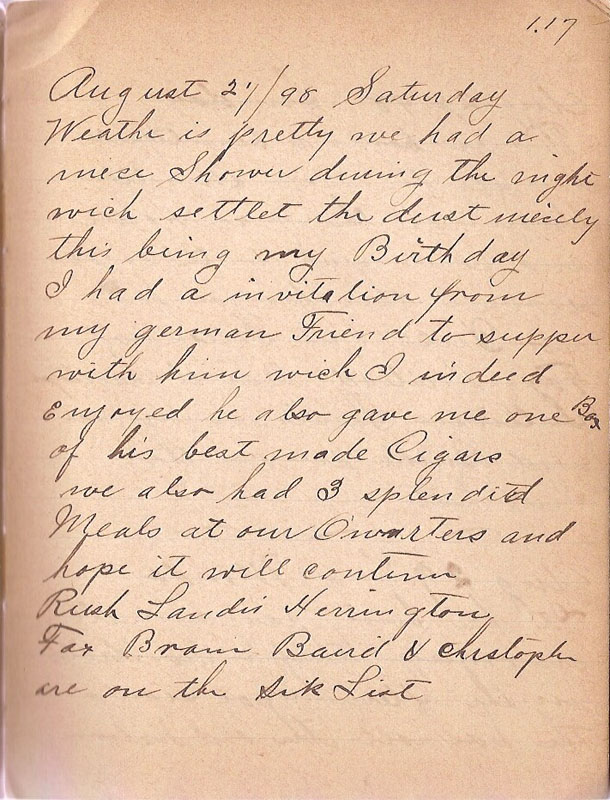 117
August 27/98 Saturday
Weathe is pretty we had a
niece Shower during the night
wich settlet the dust niecely
this being my Birthday
I had a invitation from
my german Friend to supper
with him wich I indeed
Enjoyed he also gave me one Box
of his best made Cigars
we also had 3 splendid
Meals at our Qwarters and
hope it will continu
Rush Landis Herrington
Fox Brain Baird & Christophe
are on the Sik List